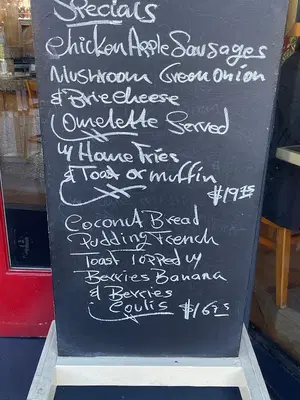 Specials
Chicken Apple Sausages
Mushroom Green onion
& Brie cheese
Omelette Served
w/ Home Fries
& Toast or muffin
$19.75
Coconut Bread
Pudding French
Toast Topped w/
Berries Banana
& Berries
Coulis $16.95